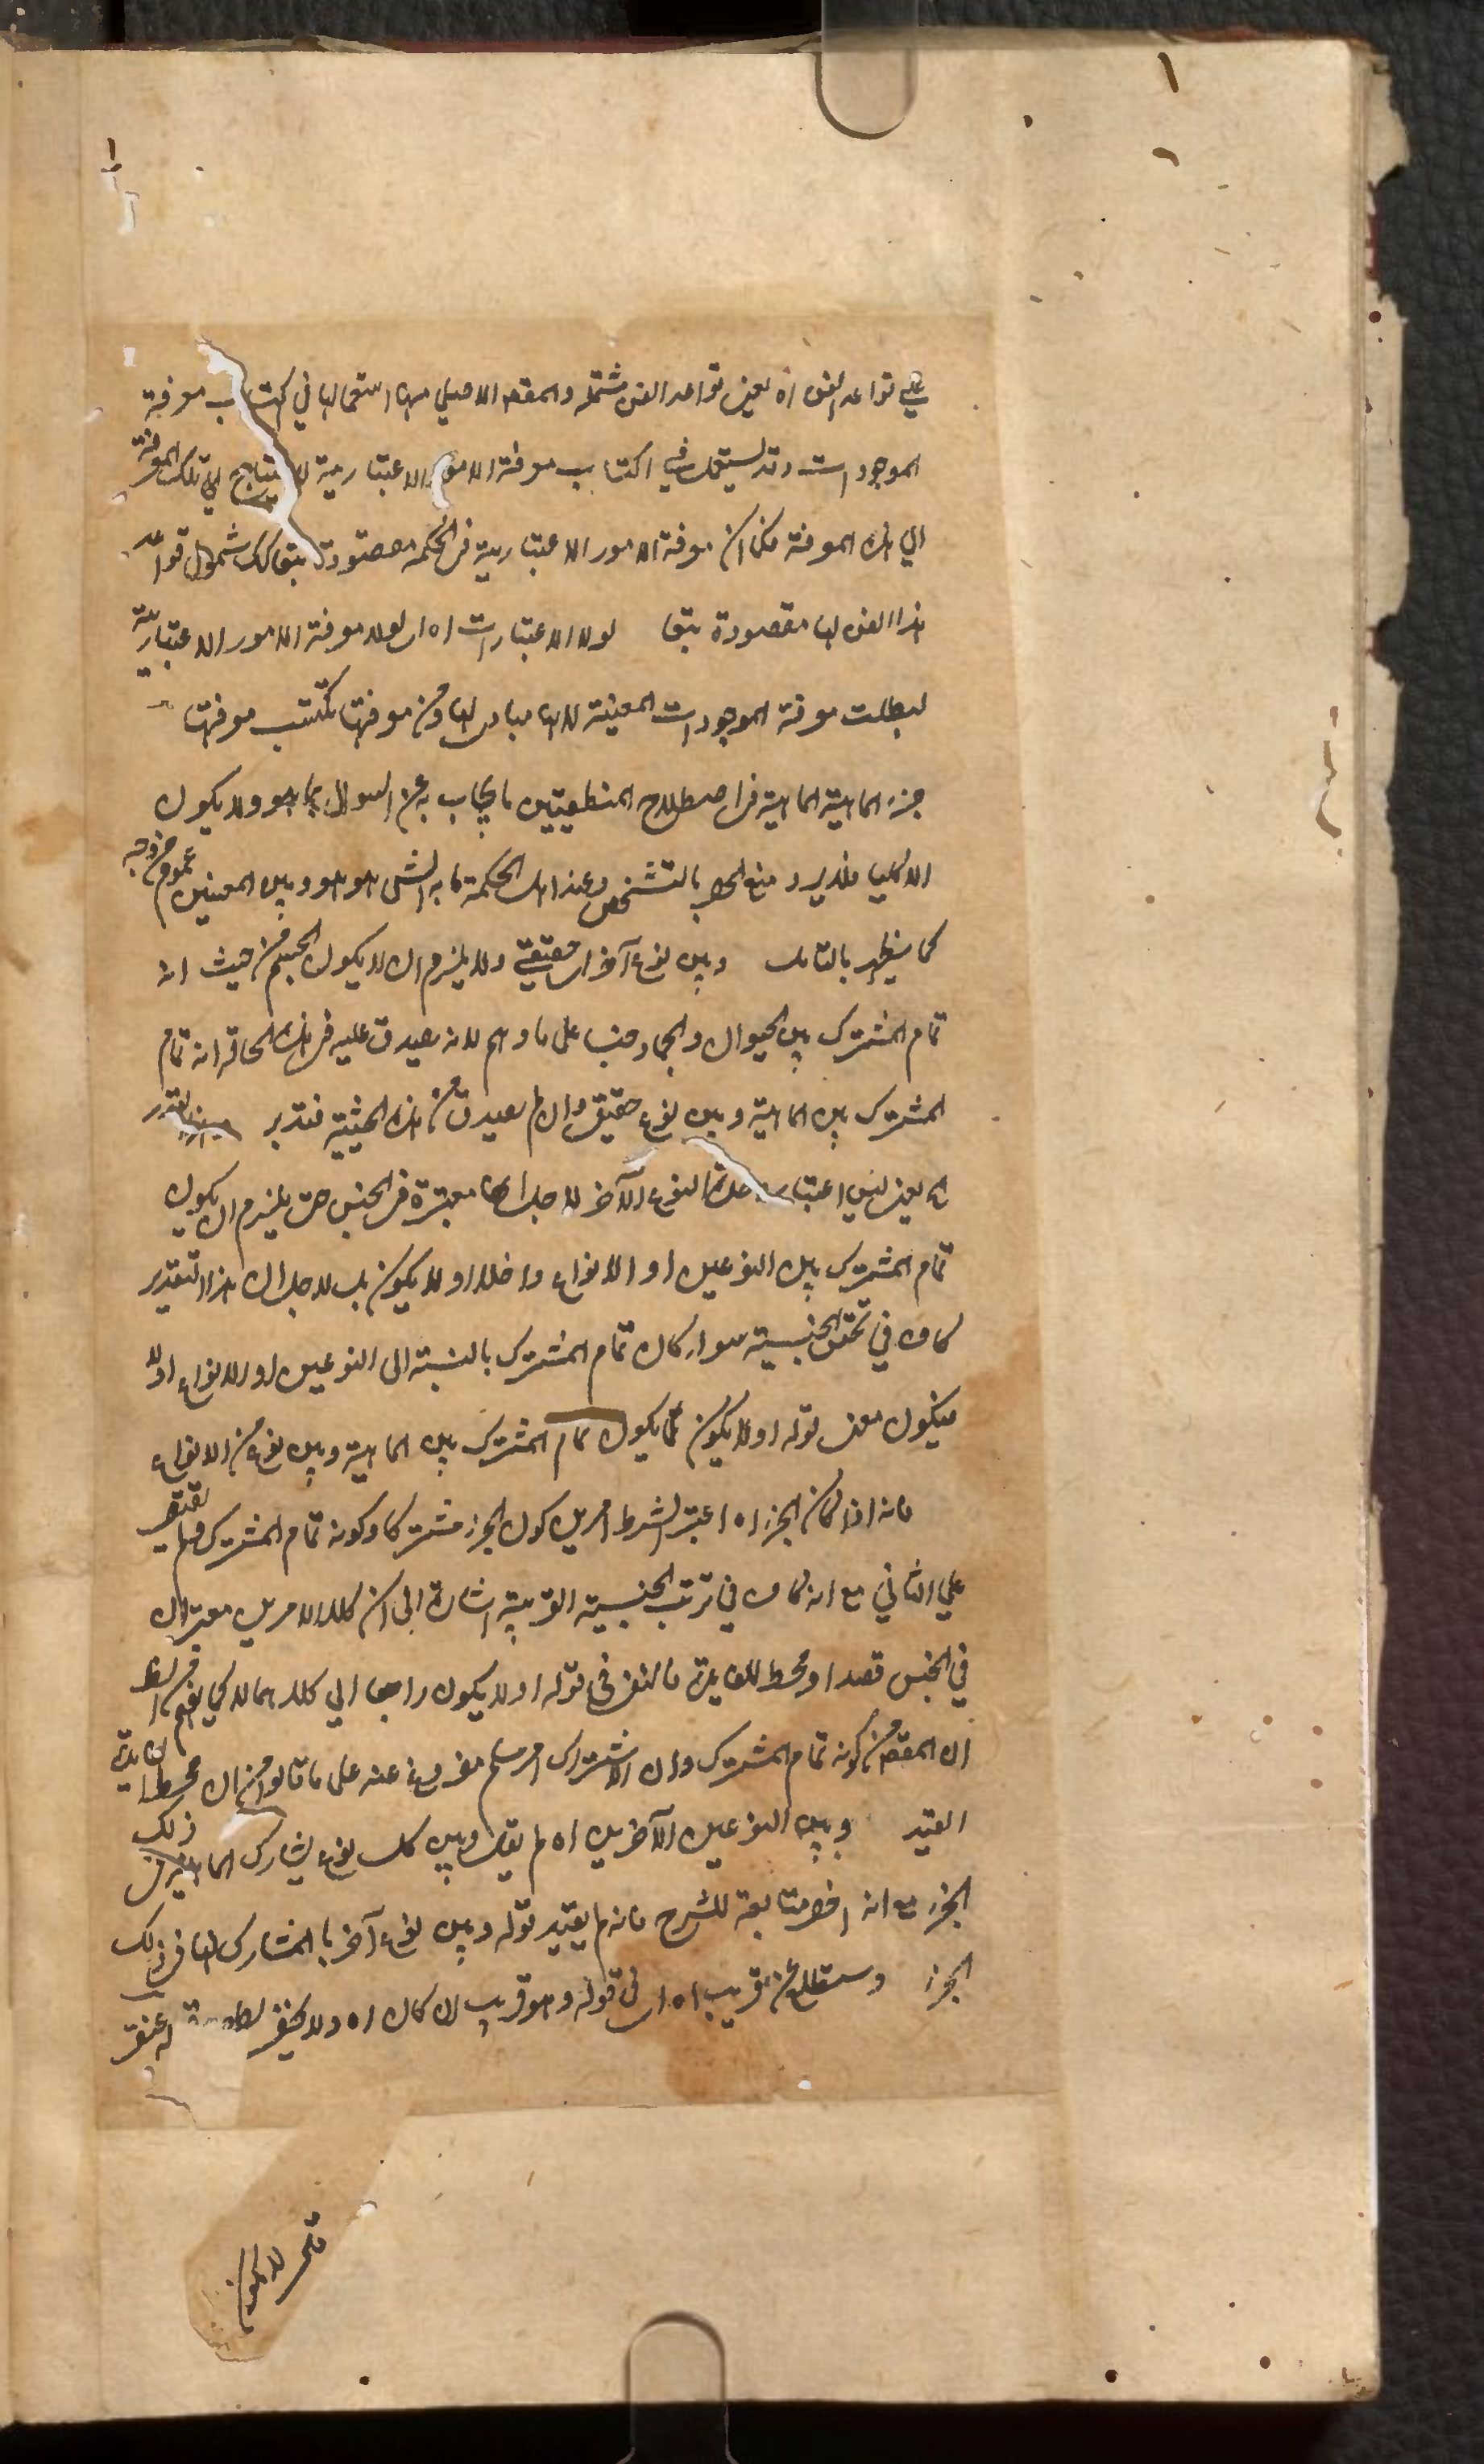 ١
١
علي قواعد الفن اه يعني قواعد الفن مشتملة والمقصد الاصلي منها استعمالها في اكتساب معرفة
الموجودات وقد يستعمل في اكتساب معرفة الامور الاعتبارية لاحتياج تلك المعرفة
الي هذه المعرفة فكما ان معرفة الامور الاعتبارية في الحكمة مقصودة تبعا كك شمول قواعد
هذا الفن لها مقصودة تبعا لولا الاعتبارات اه اي لولا معرفة الامور الاعتبارية
لبطلت معرفة الموجودات العينية لانها مبادي لها ومن معرفتها تكتسب معرفتها
جزء الماهية الماهية في اصطلاح المنطقيين ما يجاب به عن السوال بما هو ولا يكون
الا كليا فلا يرد منع الحصر بالتشخص وعند اهل الحكمة ما به الشئ هو هو وبين المعنيين عموم من وجه
كما يظهر بالتامل وبين نوع آخر اي حقيقي ولا يلزم ان لا يكون الجسم من حيث انه
تمام المشترك بين الحيوان والجماد جنسا على ما وهم لانه يصدق عليه في هذه الحالة انه تمام
المشترك بين الماهية وبين نوع حقيقي وان لم يصدق من هذه الحيثية فتدبر
اه يعني ليس اعتبار النوع الآخر لاجل انها معتبرة في الجنس حتى يلزم ان يكون
تمام المشترك بين النوعين او الانواع داخلا او لا يكون بل لاجل ان هذا التقدير
كاف في تحقق الجنسية سواء كان تمام المشترك بالنسبة الى النوعين او الانواع اولا
فيكون معنى قوله او لا يكون لا يكون تمام المشترك بين الماهية وبين نوع من الانواع
فانه اذا كان الجزء اه اعتبر الشرط امرين كون الجزء مشتركا وكونه تمام المشترك ولم يقتصر
علي الثاني مع انه كاف في ترتب الجنسية القريبة اشارة الى ان كلا الامرين معتبران
في الجنس قصدا ومحط للفايدة فالنفي في قوله او لا يكون راجعا الي كلاهما لا كما يفهم من
ان المقصد من كونه تمام المشترك وان الاشتراك امر مسلم مفروغ عنه على ما قالوا من ان محط الفايدة
القيد وبين النوعين الآخرين اه لم يقل وبين كل نوع يشارك الماهية في ذلك
الجزء مع انه اخصر متابعة للشرح فانه لم يقيد قوله وبين نوع آخر بالمشارك لها في ذلك
الجزء وستطلع عن قريب اه اي في قوله وهو قريب ان كان اه ولا يخفى